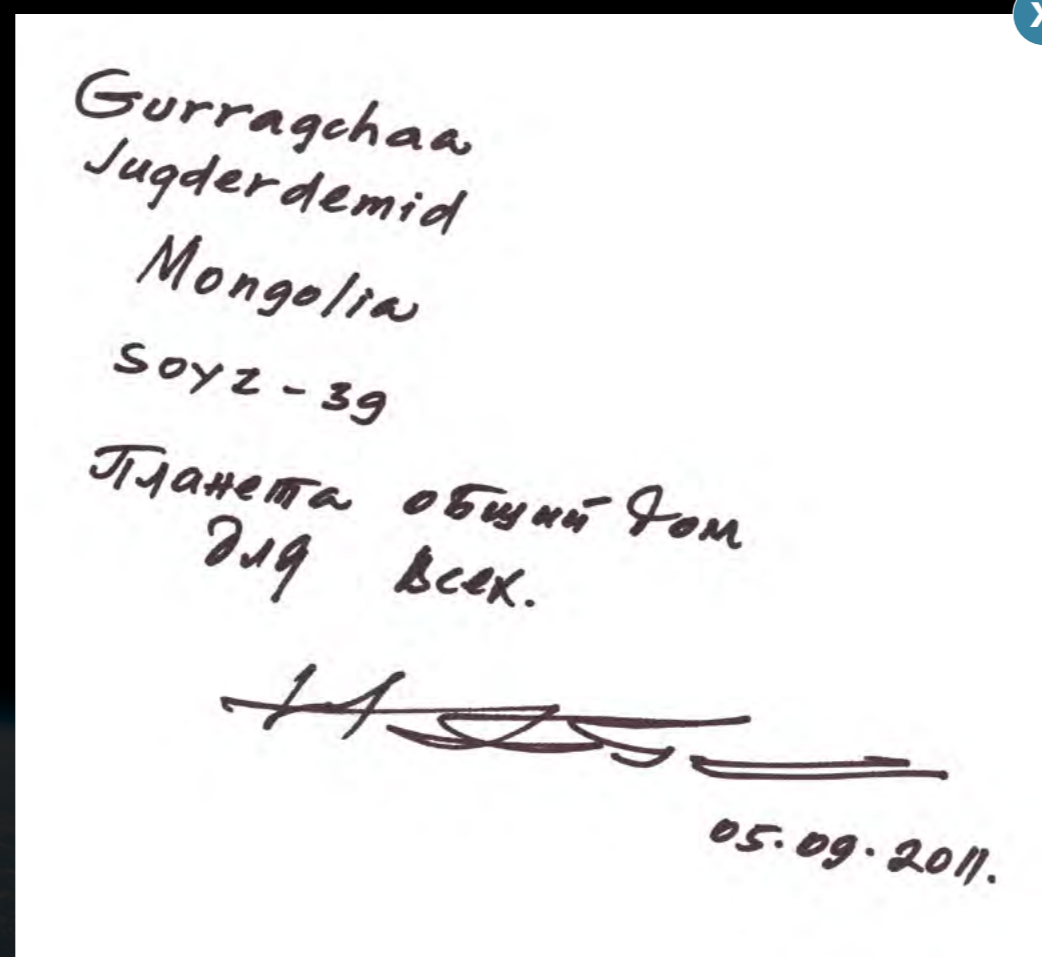 Gurragchaa
Jugderdemid
Mongolia
SOYZ - 39
Планета общий дом
для всех.
05.09.2011.